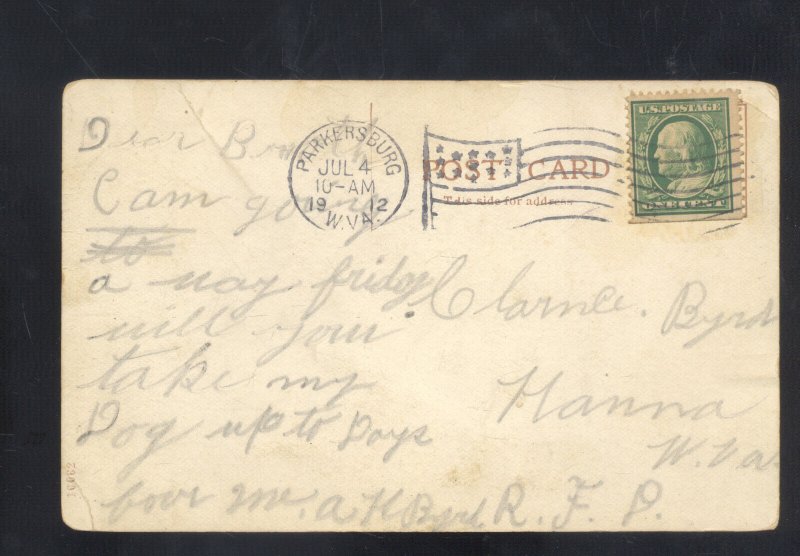 Dear Broth
I am going
to
a way friday
will you
take my
Dog up to Pop's
A H Byrd
PARKERSBURG
JUL 4
10-AM
1912
W.VA.
U.S. POSTAGE
ONE CENT
POST CARD
This side for address
Clarnce. Byrd
Hanna
W. Va
R. F. D.
10062